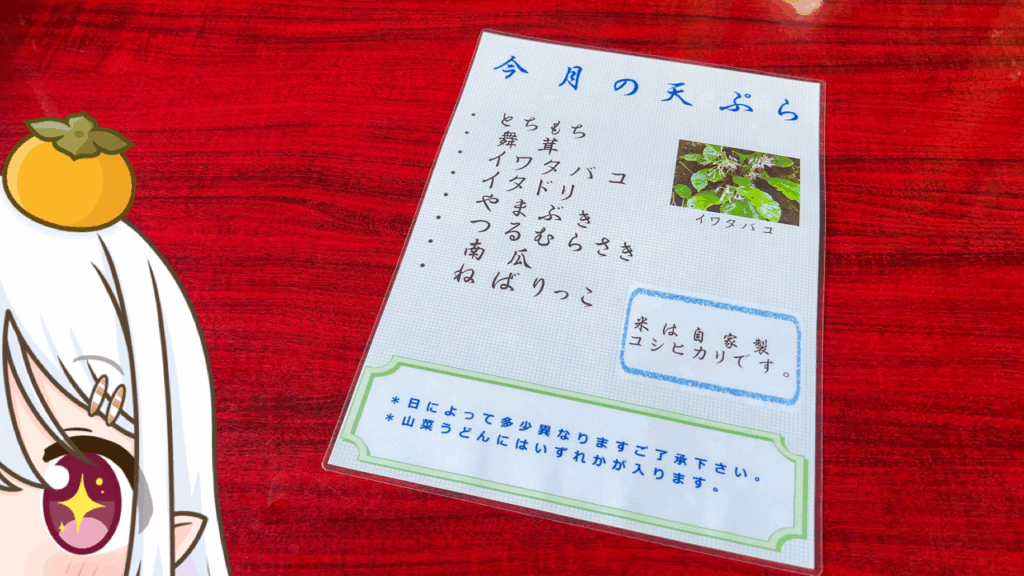 今月の天ぷら
・とちもち
・舞茸
・イワタバユ
・イタドリ
・やまぶき
・つるむらさき
・南瓜
・ねばりっこ
イワタバユ
米は自家製
コシヒカリです。
*日によって多少異なりますご了承下さい。
*山菜うどんにはいずれかが入ります。